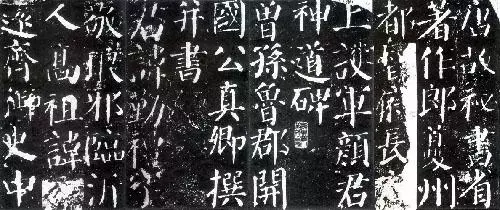 唐故秘書省
著作郎夔州
都督府長史
上護軍顏君
神道碑
曾孫魯郡開
國公真卿撰
并書
君諱勤禮字
敬琅邪臨沂
人高祖諱
遂齊御史中